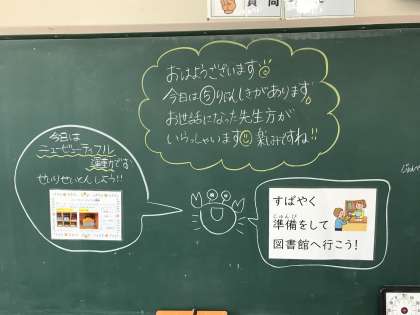 質問
おはようございます
今日は⑤りにんしきがあります。
お世話になった先生方が
いらっしゃいます 楽しみですね!!
今日は
ニュービューティフル
運動です
せいりせいとんしよう!!
すばやく
じゅんび
準備をして
図書館へ行こう!